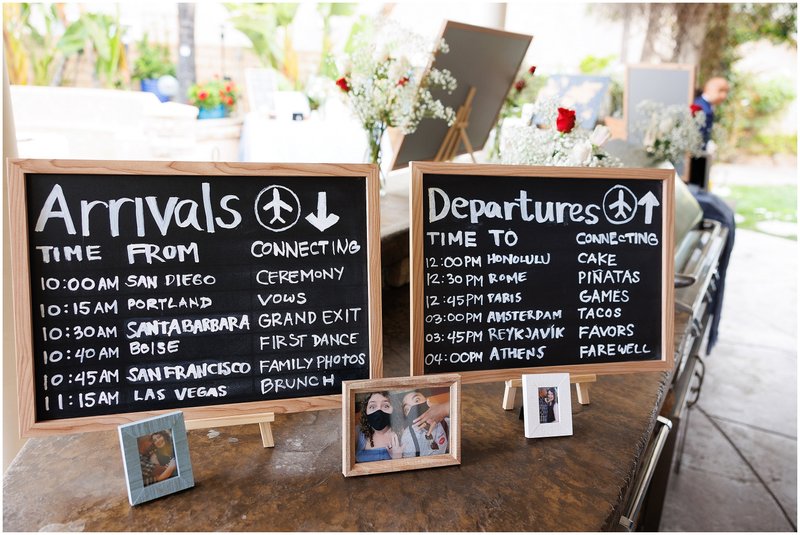 Arrivals
TIME FROM CONNECTING
10:00AM SAN DIEGO CEREMONY
10:15AM PORTLAND VOWS
10:30AM SANTABARBARA GRAND EXIT
10:40AM BOISE FIRST DANCE
10:45AM SAN FRANCISCO FAMILY PHOTOS
11:15AM LAS VEGAS BRUNCH
Departures
TIME TO CONNECTING
12:00PM HONOLULU CAKE
12:30PM ROME PIÑATAS
12:45PM PARIS GAMES
03:00PM AMSTERDAM TACOS
03:45PM REYKJAVÍK FAVORS
04:00PM ATHENS FAREWELL